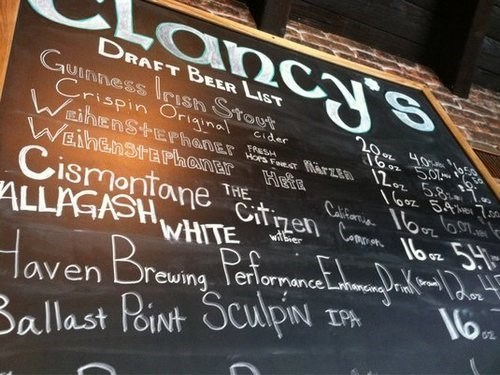 Clancy's
DRAFT BEER LIST
Guinness Irish Stout 20oz
Crispin Original cider 16oz 5.0%
WeihenStephaner FRESH HOPS FOREST Märzen 12oz 5.8%
WeihenStephaner Hefe 16oz 5.4%
Cismontane THE Citizen California Common 16oz
ALLAGASH WHITE witbier 16oz
Haven Brewing Performance Enhancing Drink 12oz
Ballast Point Sculpin IPA 16oz